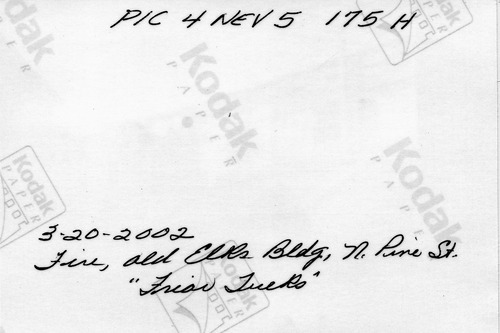 PIC 4 NEV 5 175 H
Kodak
PAPER
Kodak
Kodak
PAPER
Kodak
PAPER
3-20-2002
Fire, old Elks Bldg, N. Pine St.
"Friar Tucks"
Kodak
PAPER